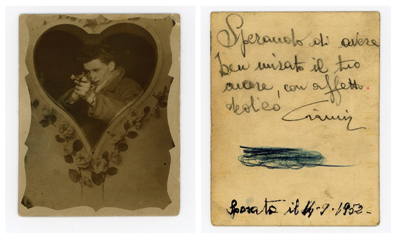 Sperando di avere
ben mirato il tuo
cuore, con affetto
Gianni
Sposata il 14-9-1952-